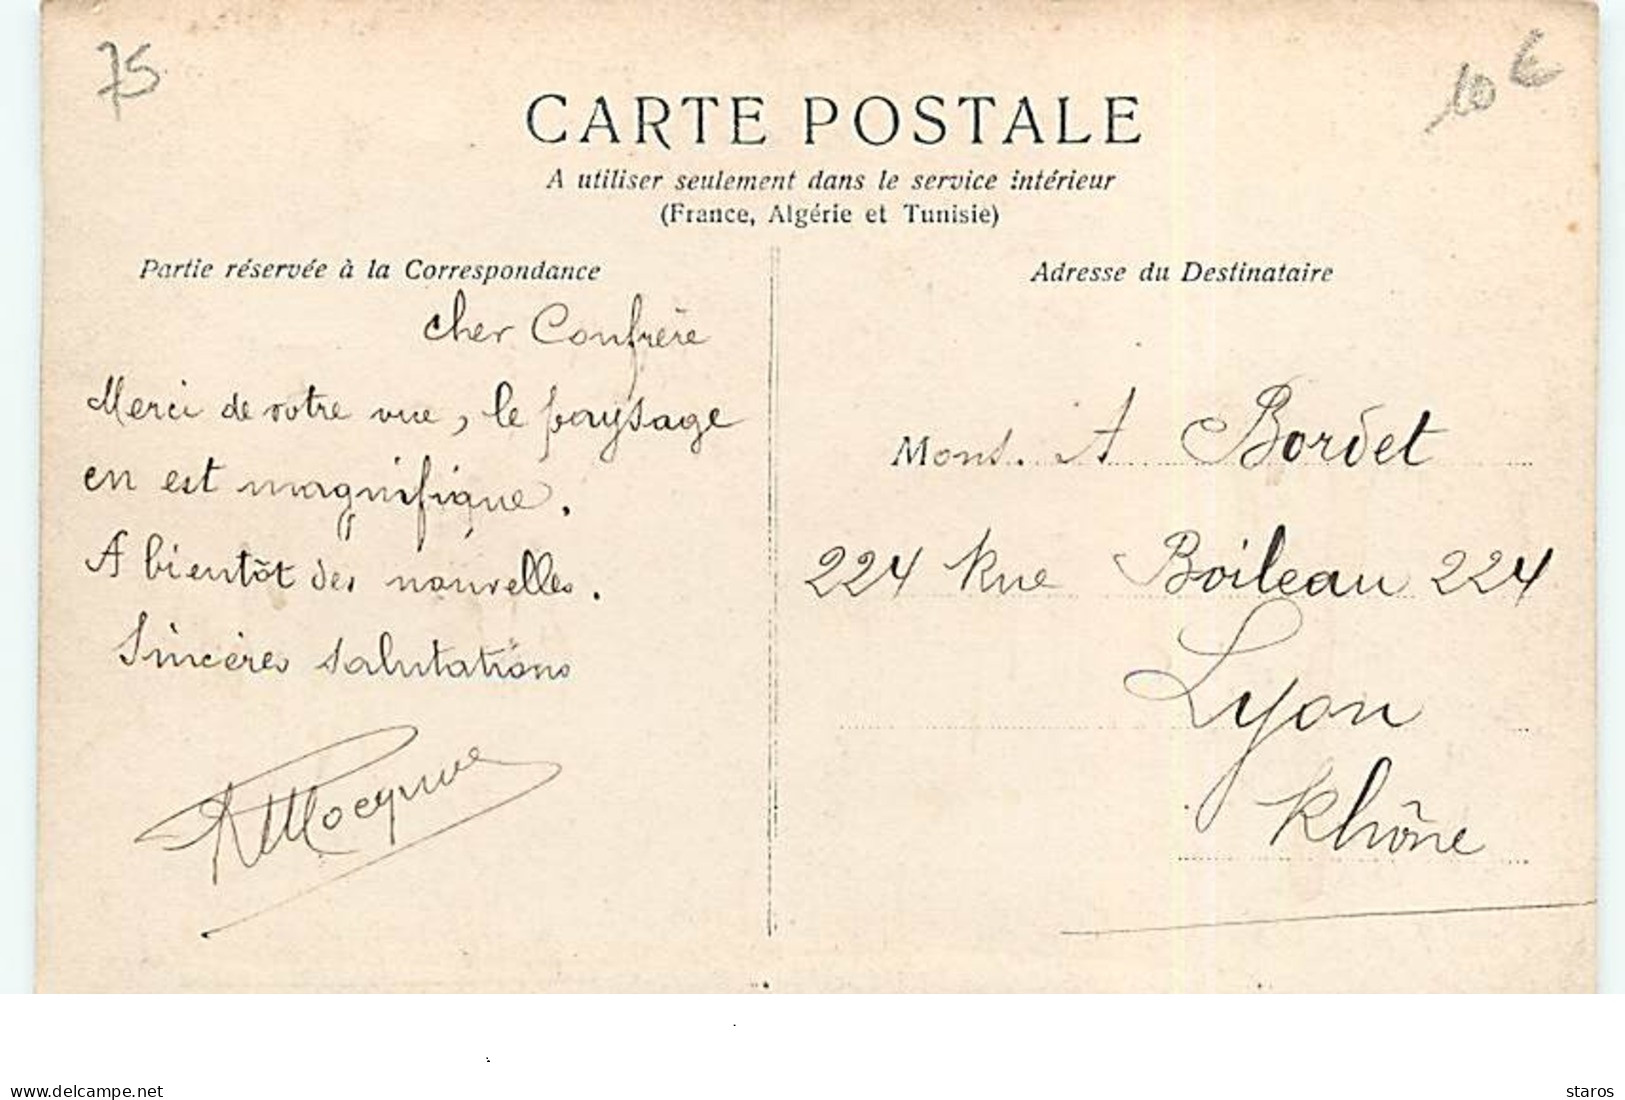 75
10 €
CARTE POSTALE
A utiliser seulement dans le service intérieur
(France, Algérie et Tunisie)
Partie réservée à la Correspondance
Adresse du Destinataire
Cher Confrère
Merci de votre vue, le paysage
en est magnifique.
A bientôt des nouvelles.
Sincères salutations
Mons. A Bordet
224 Rue Boileau 224
Lyon
Rhône
www.delcampe.net
staros